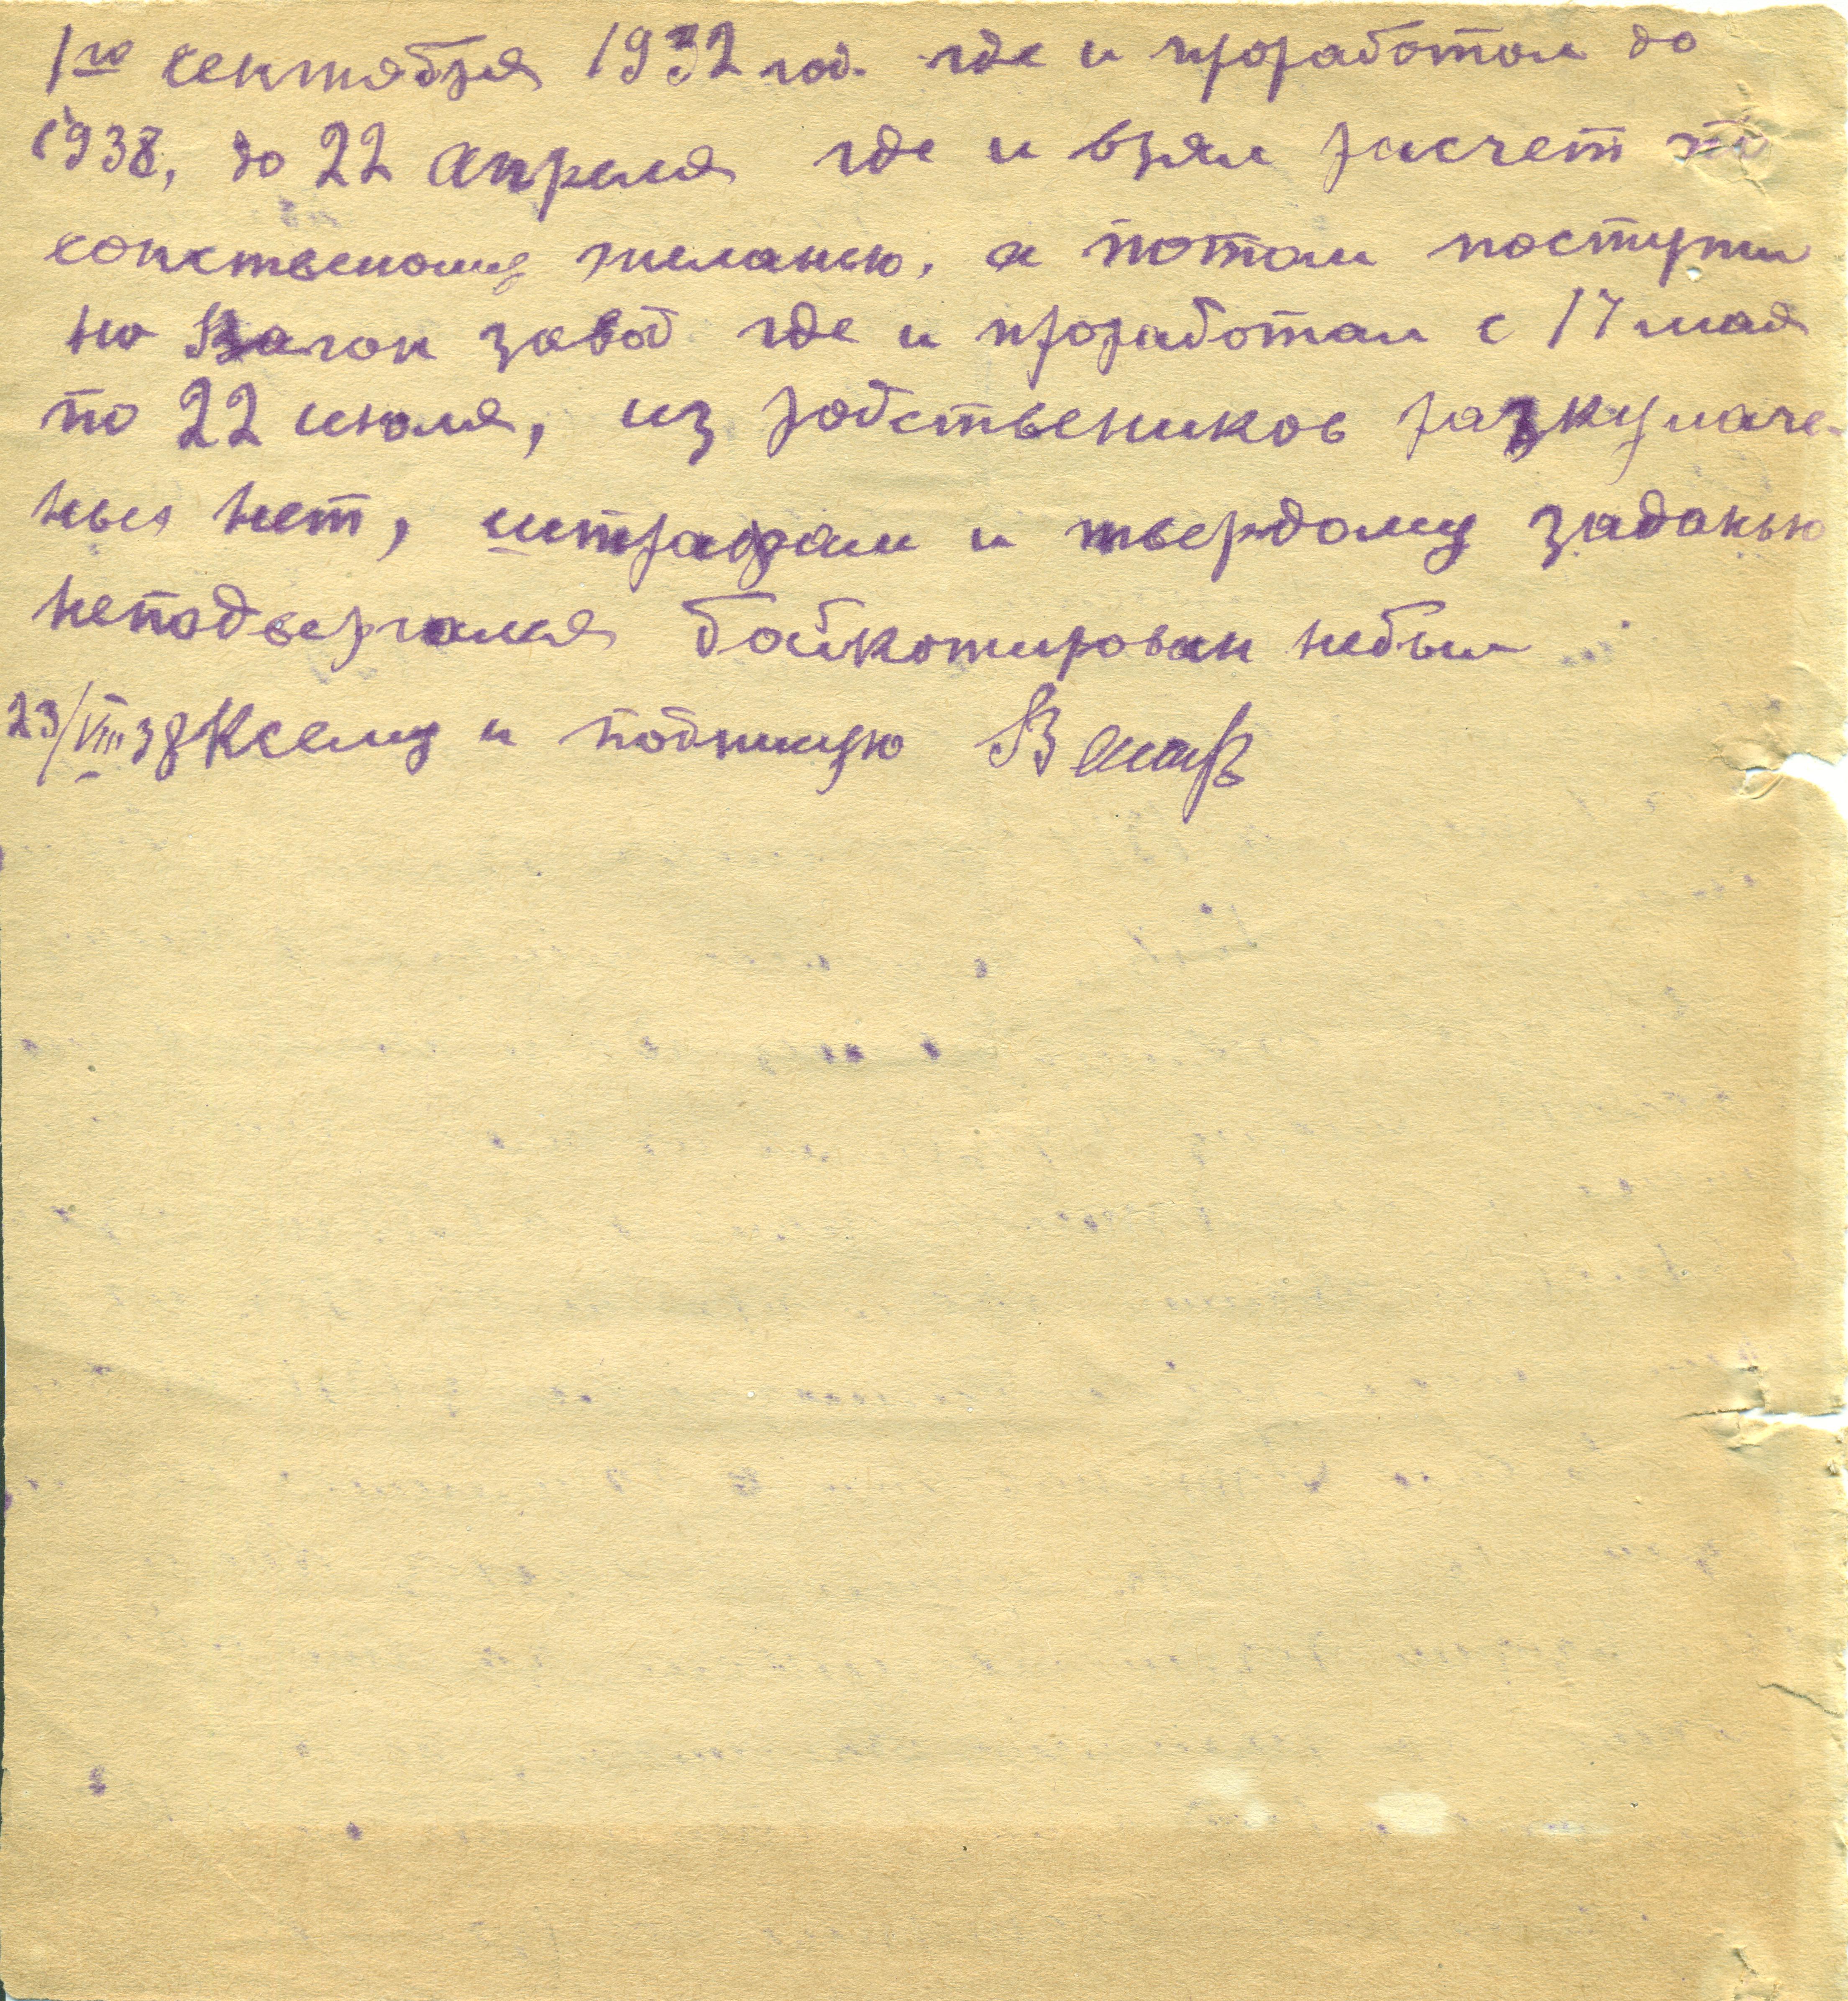 1го сентября 1932 год. где и проработал до
1938, до 22 апреля где и взял расчет по
сопственому желанью, а потом поступил
на Вагон завод где и проработал с 17 мая
по 22 июля, из родствеников разкулаче-
ных нет, штрафам и твердому заданью
неподвергался байкотирован небыл
23/VIII 38 К сему и подпишусь